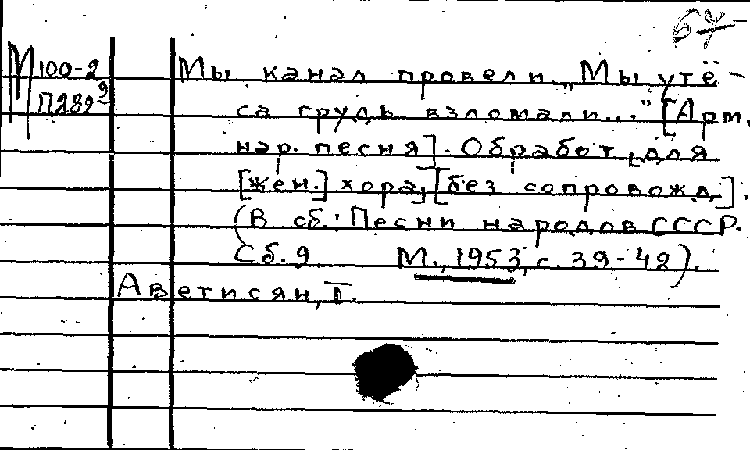 М 100-2 Мы канал провели. „Мы утё-
П2899 са грудь взломали..." [Арм.
нар. песня]. Обработ. для
[жен.] хора, [без сопровожд.].
(В сб.: Песни народов СССР.
Сб. 9 М., 1953, с. 39-42).
Аветисян, Т.